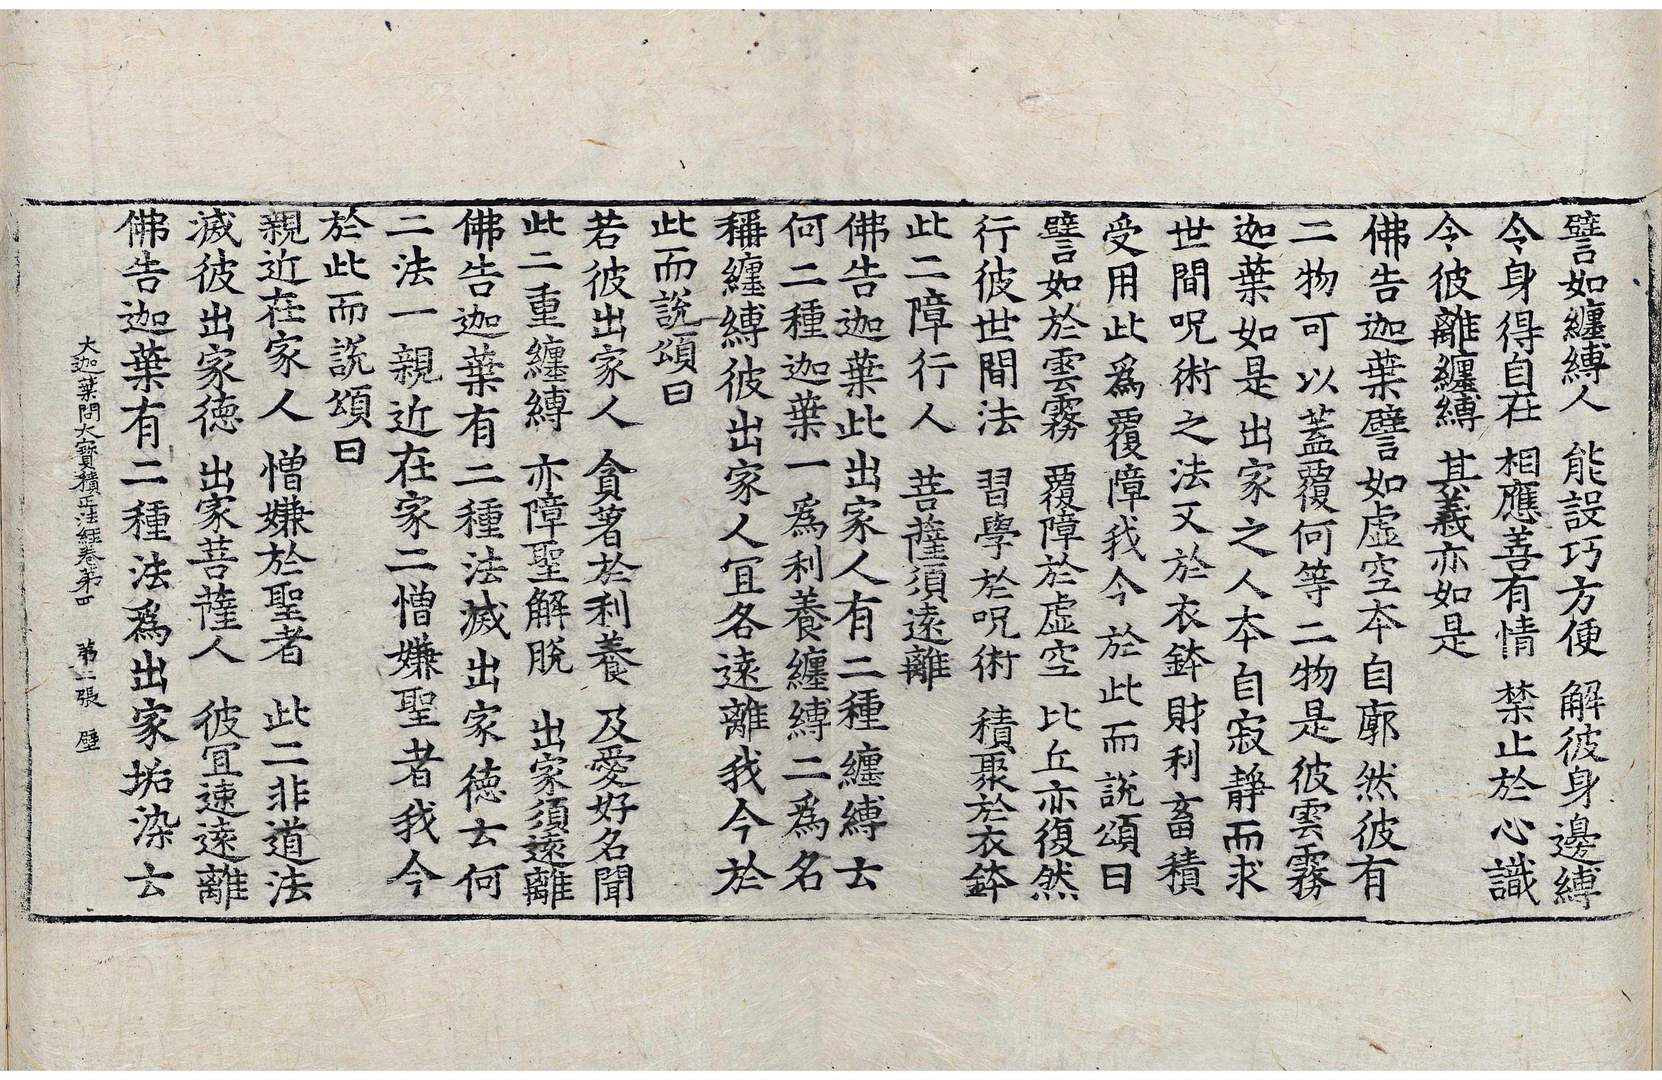 譬如纏縛人　能設巧方便　解彼身邊縛
令身得自在　相應善有情　禁止於心識
令彼離纏縛　其義亦如是
佛告迦葉譬如虛空本自廓然彼有
二物可以蓋覆何等二物是彼雲霧
迦葉如是出家之人本自寂靜而求
世間呪術之法又於衣鉢財利畜積
受用此爲覆障我今於此而說頌曰
譬如於雲霧　覆障於虛空　比丘亦復然
行彼世間法　習學於呪術　積聚於衣鉢
此二障行人　菩薩須遠離
佛告迦葉此出家人有二種纏縛云
何二種迦葉一爲利養纏縛二爲名
稱纏縛彼出家人宜各遠離我今於
此而說頌曰
若彼出家人　貪著於利養　及愛好名聞
此二重纏縛　亦障聖解脫　出家須遠離
佛告迦葉有二種法滅出家德云何
二法一親近在家二憎嫌聖者我今
於此而說頌曰
親近在家人　憎嫌於聖者　此二非道法
滅彼出家德　出家菩薩人　彼宜速遠離
佛告迦葉有二種法爲出家垢染云
大迦葉問大寶積正法經卷第四　第二張　壁